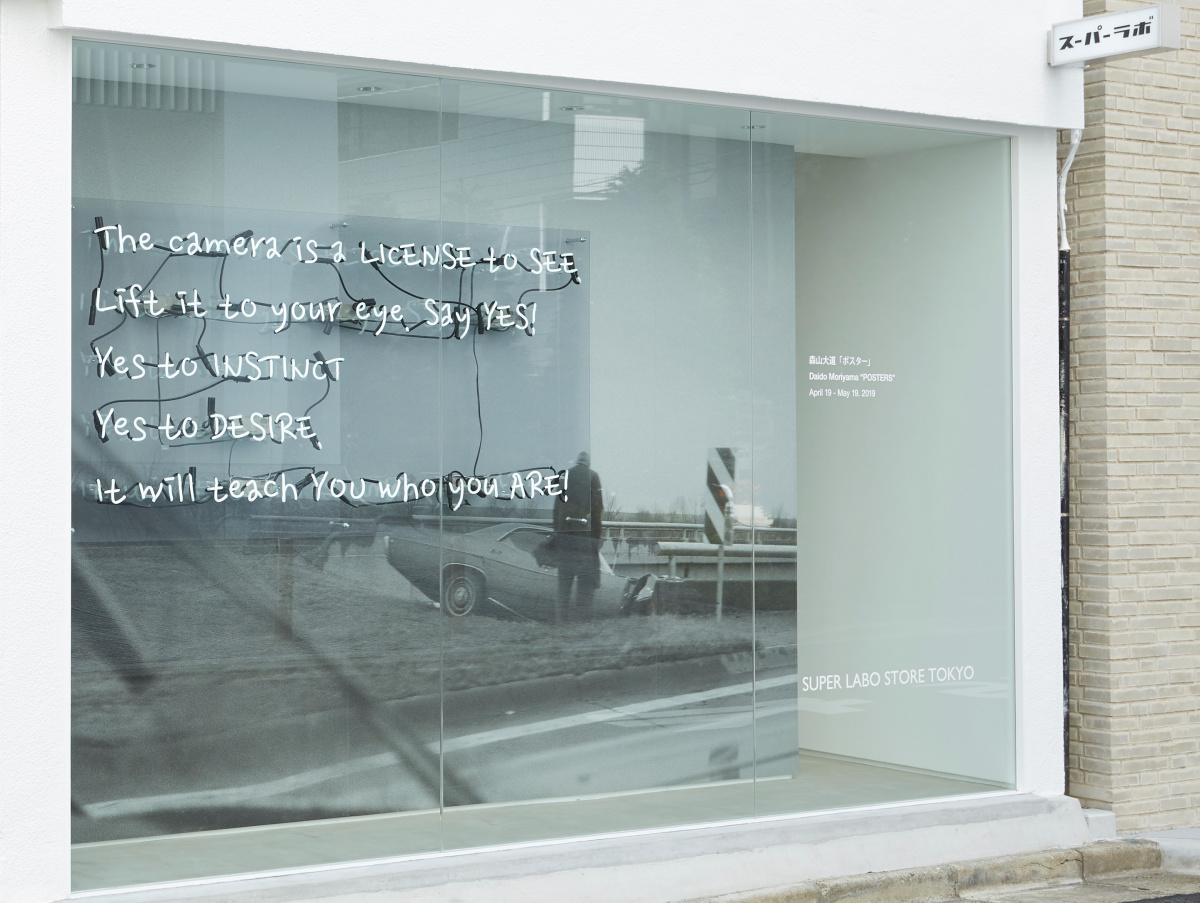 スーパーラボ
The camera is a LICENSE to SEE.
Lift it to your eye. Say YES!
Yes to INSTINCT
Yes to DESIRE.
It will teach YOU who you ARE!
森山大道「ポスター」
Daido Moriyama "POSTERS"
April 19 - May 19. 2019
SUPER LABO STORE TOKYO